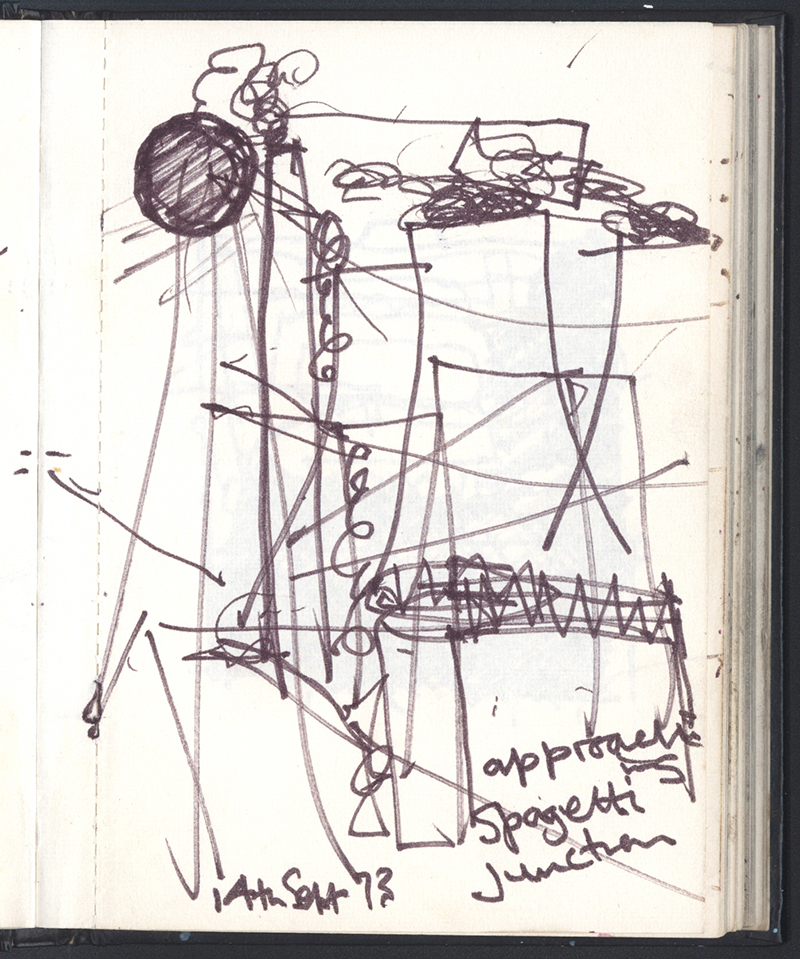 approach
ing
Spagetti
junction
14th Sept 73